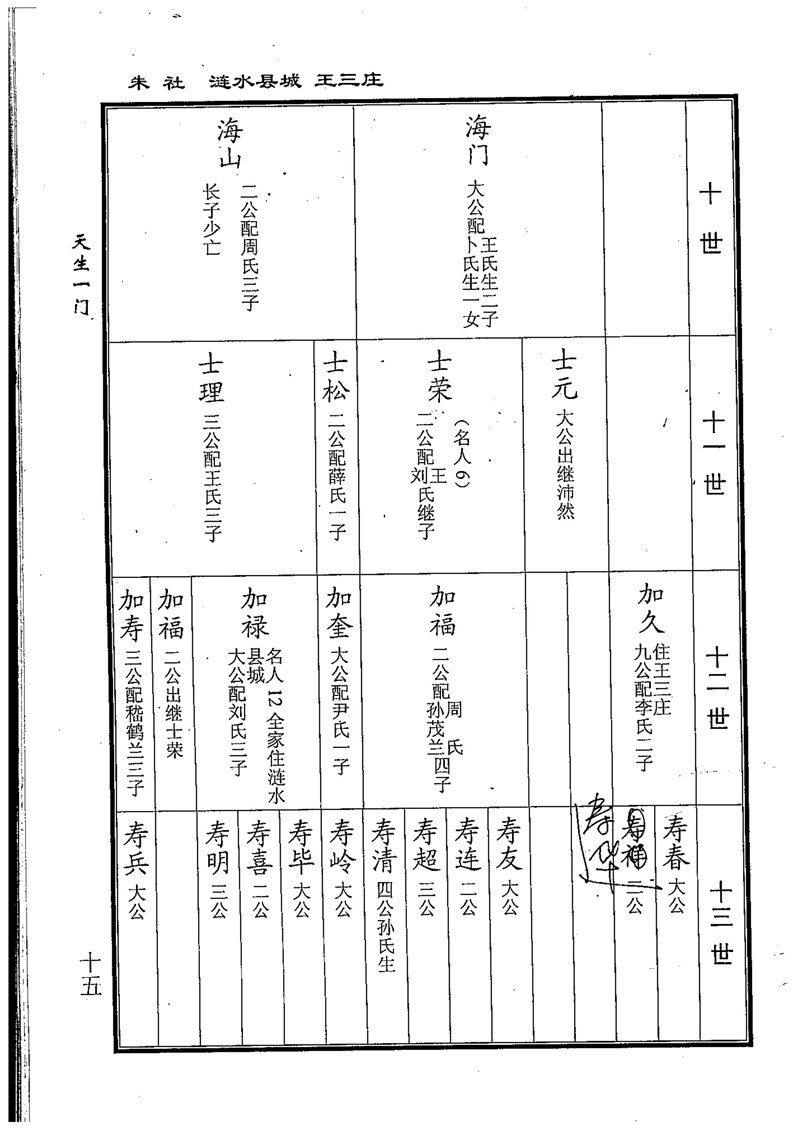 朱 社 涟水县城 王三庄
十世
海门
大公配
王氏生二子
卜氏生一女
海山
二公配周氏三子
长子少亡
十一世
士元
大公出继沛然
士荣
(名人6)
二公配
王
刘氏继子
士松
二公配薛氏一子
士理
三公配王氏三子
十二世
加久
住王三庄
九公配李氏二子
加福
二公配
周氏
孙茂兰四子
加奎
大公配尹氏一子
加禄
名人12全家住涟水
县城
大公配刘氏三子
加福
二公出继士荣
加寿
三公配嵇鹤兰三子
十三世
寿春
大公
二公
寿华
寿友
大公
寿连
二公
寿超
三公
寿清
四公孙氏生
寿岭
大公
寿毕
大公
寿喜
二公
寿明
三公
寿兵
大公
天生一门
十五